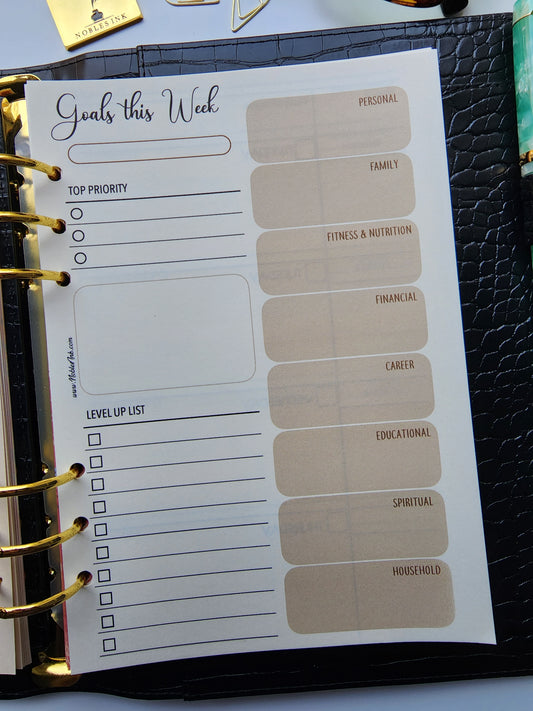 NOBLES INK
Goals this Week
TOP PRIORITY
www.NoblesInk.com
LEVEL UP LIST
PERSONAL
FAMILY
FITNESS & NUTRITION
FINANCIAL
CAREER
EDUCATIONAL
SPIRITUAL
HOUSEHOLD